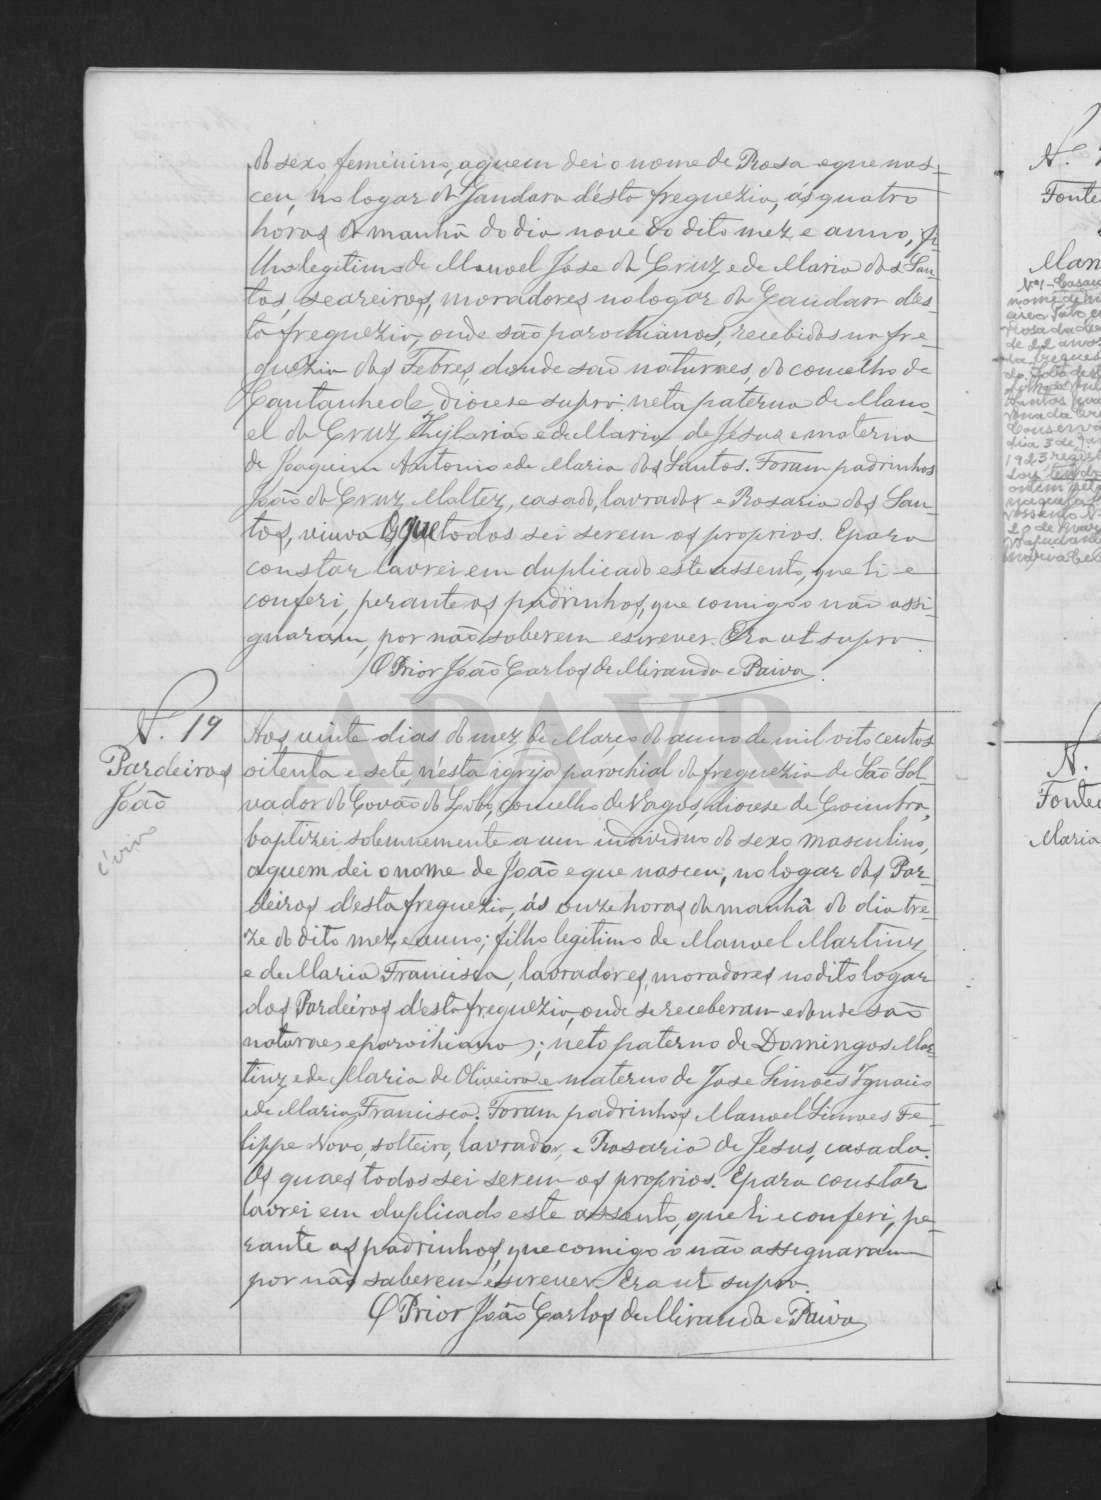 do sexo feminino, a quem dei o nome de Rosa e que nas-
ceu, no logar da Gandara d'esta freguezia, ás quatro
horas da manhã do dia nove do dito mez e anno, fi-
lha legitima de Manoel Jose da Cruz e de Maria dos San-
tos, seareiros, moradores no logar da Gandara d'es-
ta freguezia, onde são parochianos, recebidos na fre-
guezia das Febres, donde são naturaes, do concelho de
Cantanhede, diocese supra: neta paterna de Mano-
el da Cruz Hylario e de Maria de Jesus e materna
de Joaquim Antonio e de Maria dos Santos. Foram padrinhos
João da Cruz Maltez, casado, lavrador e Rosaria dos San-
tos, viuva que todos sei serem os proprios. E para
constar lavrei em duplicado este assento, que li e
conferi, perante os padrinhos, que comigo o não assi-
gnaram, por não saberem escrever. Era ut supra.
O Prior João Carlos de Miranda e Paiva.
N. 19
Pardeiros
João
Aos vinte dias do mez de Março do anno de mil oito centos
oitenta e sete, n'esta igreja parochial da freguezia de São Sal-
vador do Covão do Lobo, concelho de Vagos, diocese de Coimbra,
baptizei solemnemente a um individuo do sexo masculino,
a quem dei o nome de João e que nasceu, no logar dos Par-
deiros d'esta freguezia, ás onze horas da manhã do dia tre-
ze do dito mez e anno; filho legitimo de Manoel Martinz
e de Maria Francisca, lavradores, moradores no dito logar
dos Pardeiros d'esta freguezia, onde se receberam e donde são
naturaes e parochianos; neto paterno de Domingos Mar-
tinz e de Maria de Oliveira e materno de Jose Simões Ignacio
e de Maria Francisca. Foram padrinhos Manoel Simoes Fe-
lippe Novo, solteiro, lavrador, e Rosaria de Jesus, casada.
Os quaes todos sei serem os proprios. E para constar
lavrei em duplicado este assento, que li e conferi, pe-
rante os padrinhos, que comigo o não assignaram
por não saberem escrever. Era ut supra.
O Prior João Carlos de Miranda e Paiva
ADAVR
N.
Fonte
Man
1923
N.
Fonte
Maria